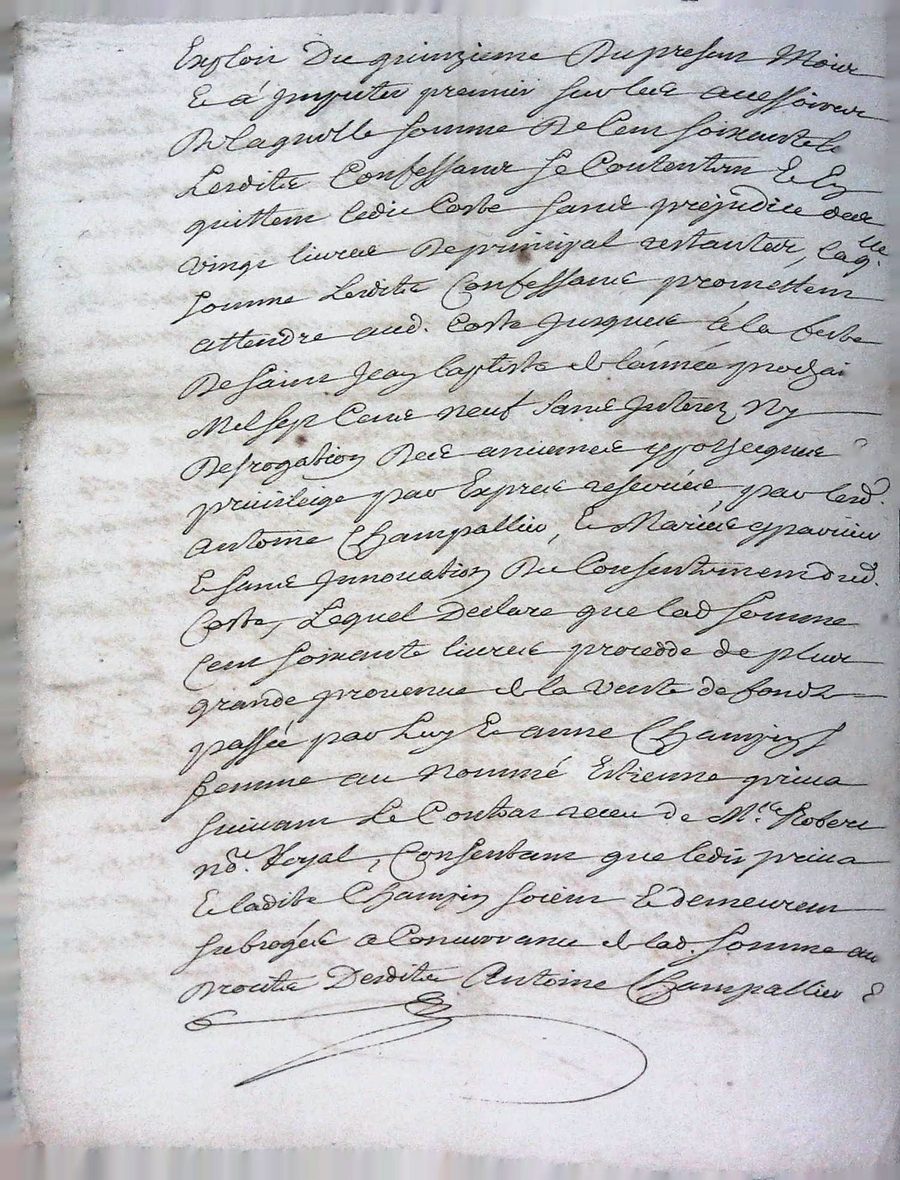 Exploit du quinzieme du presen mois
Et a imputer premier sur les accessoires
De laquelle somme de Cent soixante l.
Lesdits Confessans se Contentem & En
quittem ledit Coste sans prejudice des
vingt livres de principal restantes, laq.lle
somme lesdits Confessans promettem
attendre aud. Coste jusques a la feste
De sainct Jean baptiste de l'année prochai
Mil sept Cens neuf sans Interez Ny
Desrogation des anciennes ypotheques
privileige par Expres reservées par lesd.
Antoine Champallier, & Maries
& sans Innovation du Consentemen dud.
Coste, Lequel Declare que lad somme
Cent soixante livres procedde de plus
grande provenue de la vente de fonds
passée par Luy & anne Champin
femme au nommé Estienne priua
suivant Le Contrat receu de M.re Robert
no.re Royal, Consentant que ledit priua
& ladite Champin soient & demeurem
subrogés a Concurrance de lad somme au
Droits Desdits Antoine Champallier &